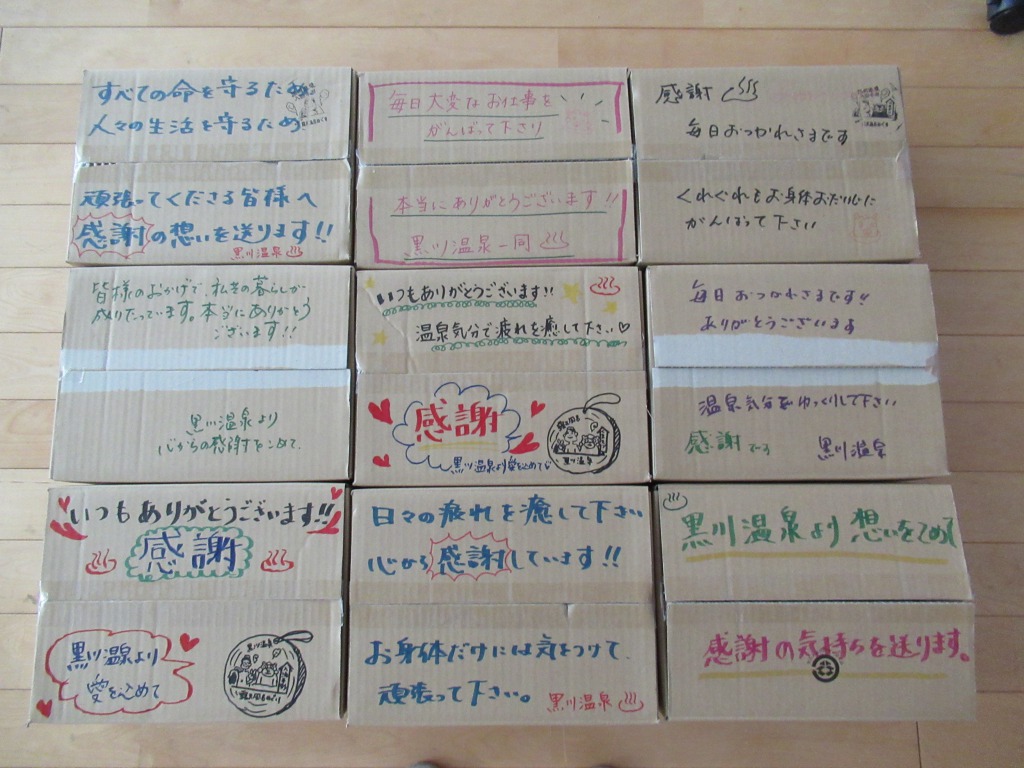 すべての命を守るため
人々の生活を守るため
頑張ってくださる皆様へ
感謝の想いを送ります!!
黒川温泉
毎日大変なお仕事を
がんばって下さり
本当にありがとうございます!!
黒川温泉一同
感謝
毎日おつかれさまです
くれぐれもお身体お大切に
がんばって下さい
皆様のおかげで、私達の暮らしが
成りたっています。本当にありがとう
ございます!!
黒川温泉より
心からの感謝をこめて
いつもありがとうございます!!
温泉気分で疲れを癒して下さい♡
感謝
黒川温泉より愛をこめて
黒川温泉
毎日おつかれさまです!!
ありがとうございます
温泉気分でゆっくりして下さい
感謝
黒川温泉
いつもありがとうございます!!
感謝
黒川温泉より
愛をこめて
黒川温泉
日々の疲れを癒して下さい
心から感謝しています!!
お身体だけには気をつけて、
頑張って下さい。
黒川温泉
黒川温泉より想いをこめて
感謝の気持ちを送ります。